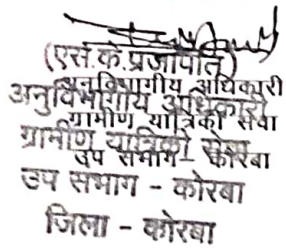 (एस.के.प्रजापति)
अनुविभागीय अधिकारी
अनुविभागीय अधिकारी
ग्रामीण यांत्रिकी सेवा
ग्रामीण यांत्रिकी सेवा
उप संभाग - कोरबा
उप संभाग - कोरबा
जिला - कोरबा